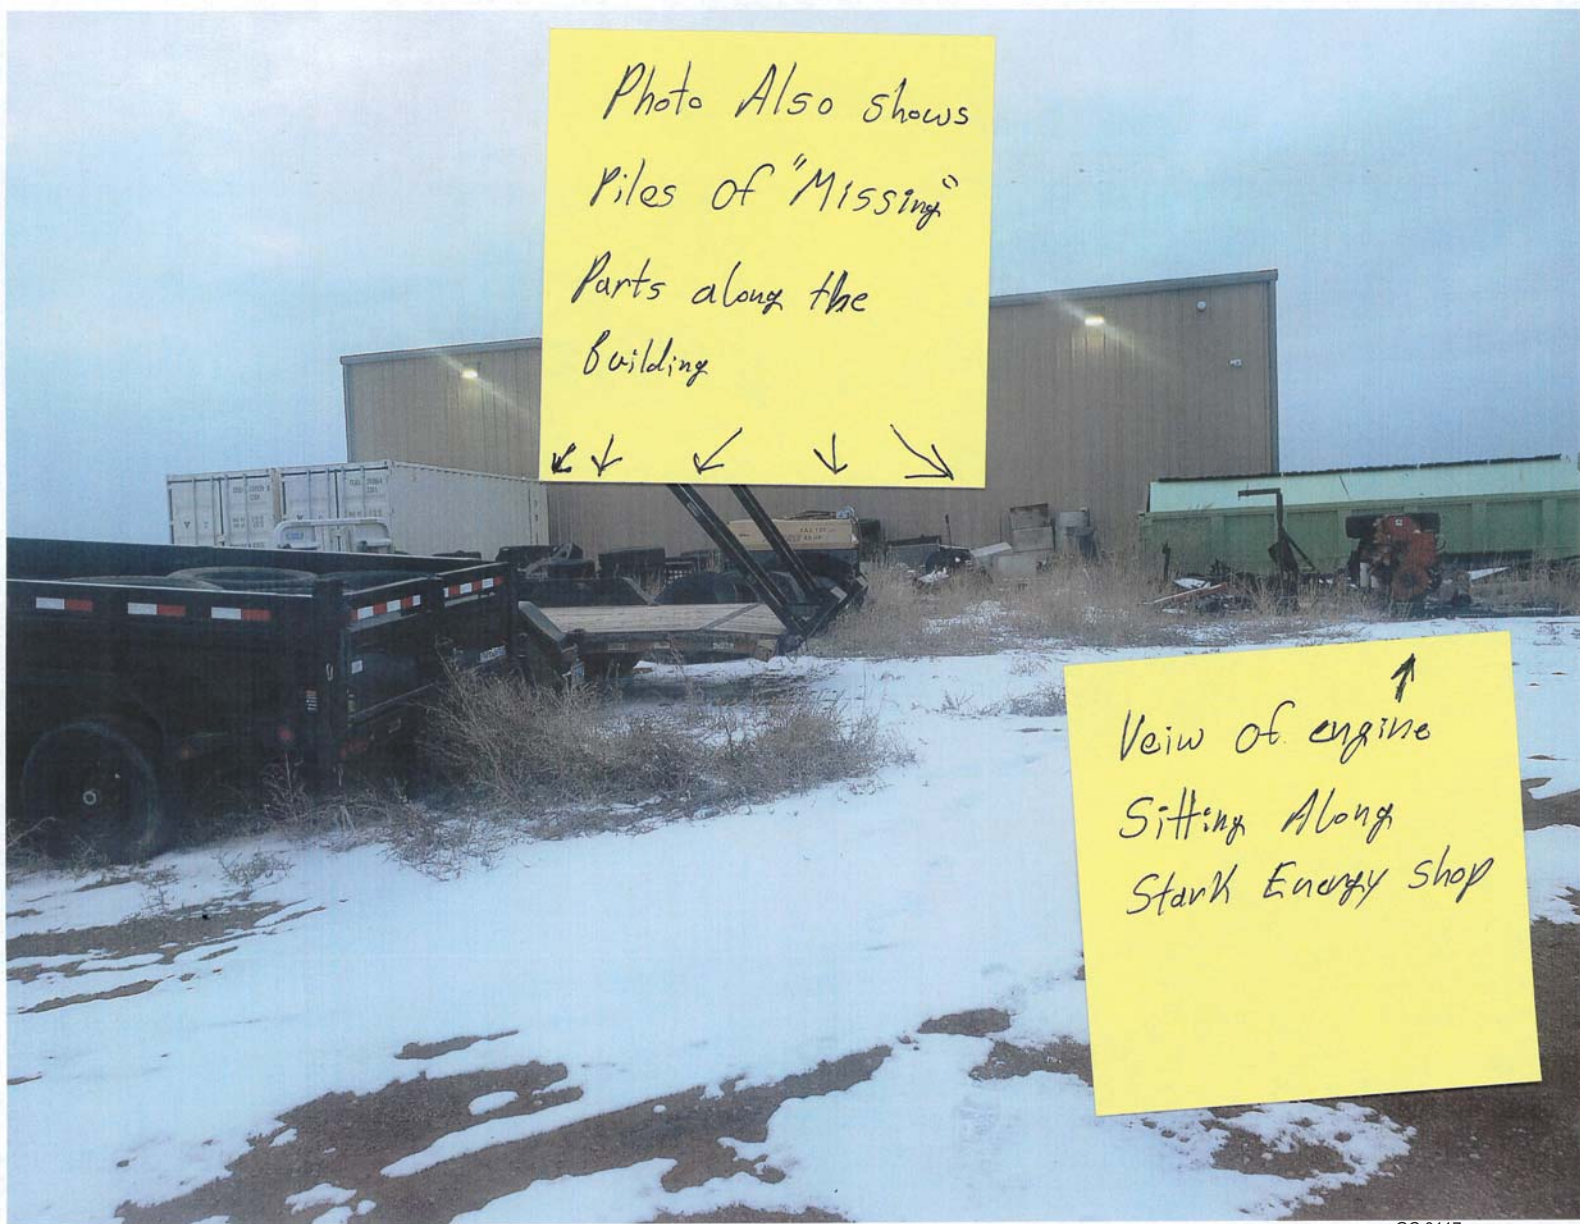 Photo Also shows
Piles of "Missing"
Parts along the
Building
Veiw of engine
Sitting Along
Stark Energy shop